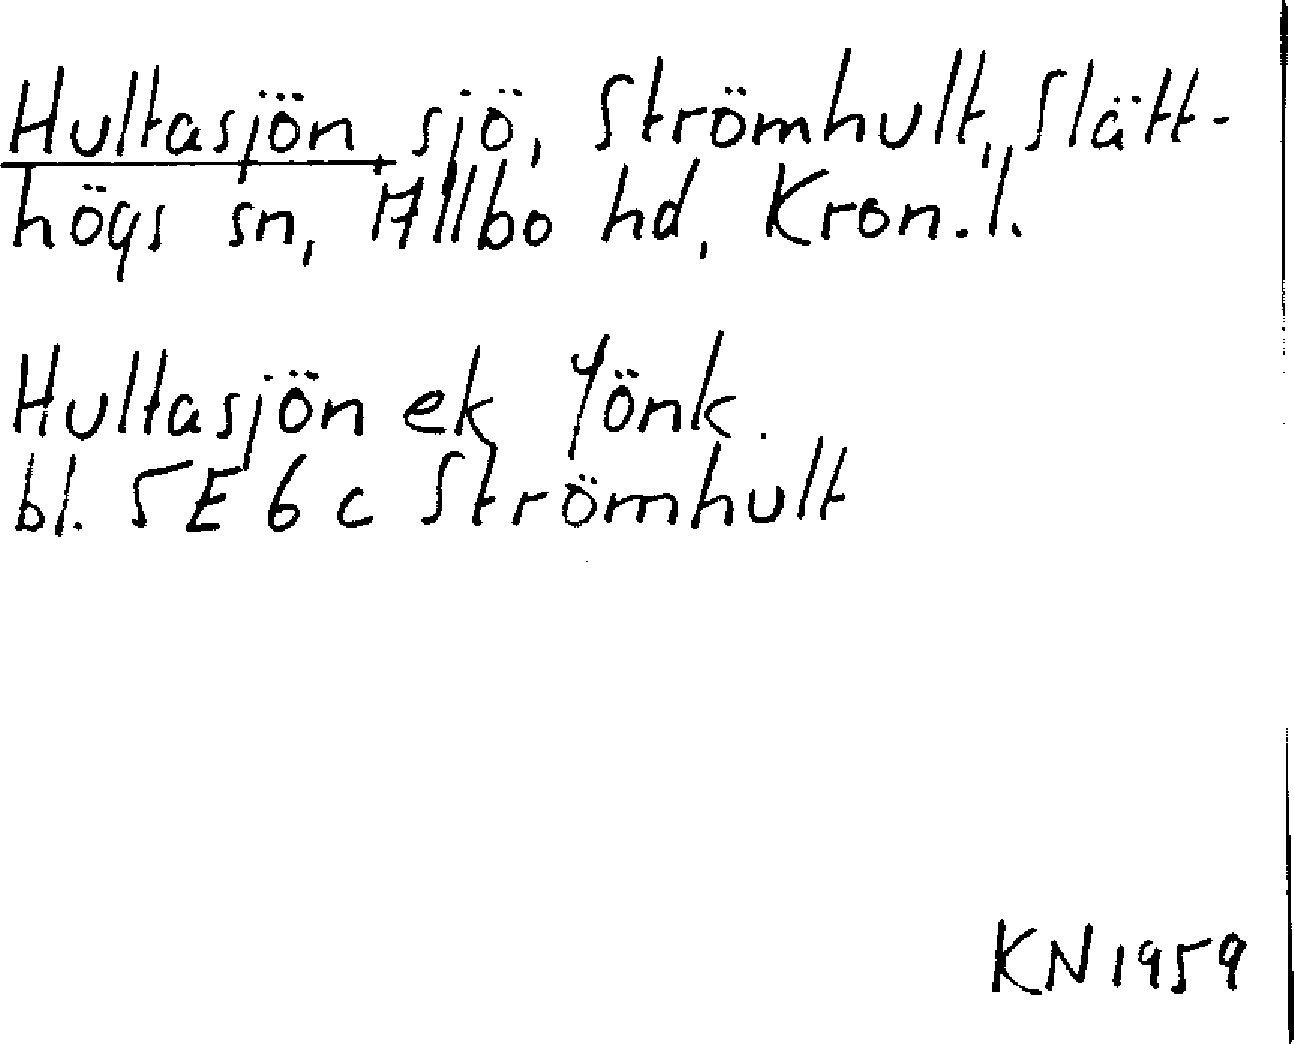 Hultasjön, sjö, Strömhult, Slätt-
högs sn, Allbo hd, Kron. l.
Hultasjön ek Jönk.
bl. 5E 6c Strömhult
KN 1959